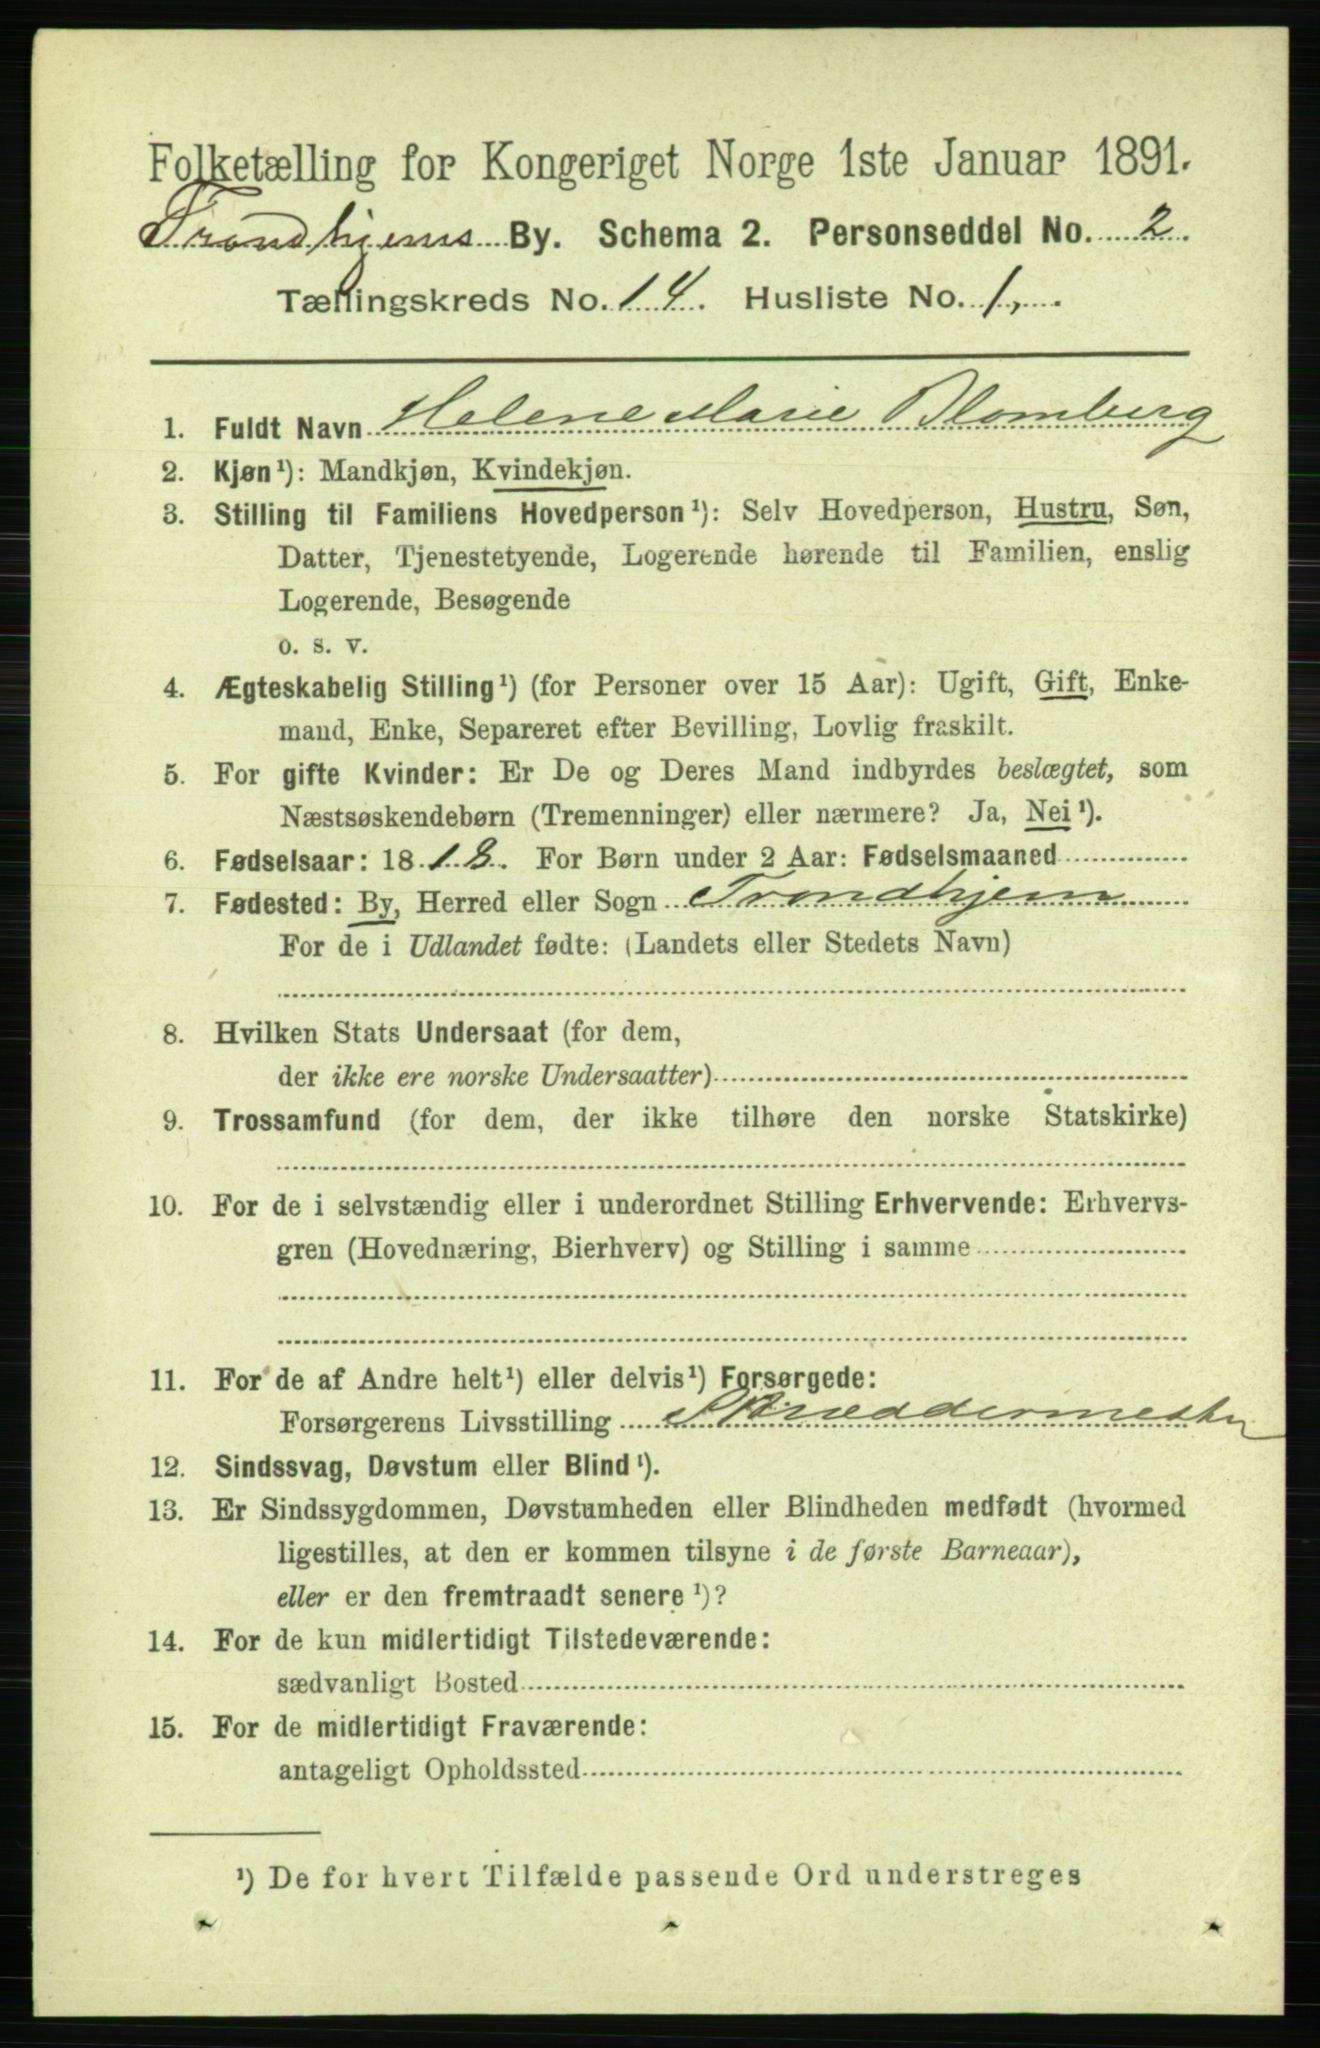 Folketælling for Kongeriget Norge 1ste Januar 1891.
Trondhjems By. Schema 2. Personseddel No. 2.
Tællingskreds No. 14. Husliste No. 1,.
1. Fuldt Navn Helene Marie Blomberg
2. Kjøn¹): Mandkjøn, Kvindekjøn.
3. Stilling til Familiens Hovedperson¹): Selv Hovedperson, Hustru, Søn,
Datter, Tjenestetyende, Logerende hørende til Familien, enslig
Logerende, Besøgende
o. s. v.
4. Ægteskabelig Stilling¹) (for Personer over 15 Aar): Ugift, Gift, Enke-
mand, Enke, Separeret efter Bevilling, Lovlig fraskilt.
5. For gifte Kvinder: Er De og Deres Mand indbyrdes beslægtet, som
Næstsøskendebørn (Tremenninger) eller nærmere? Ja, Nei¹).
6. Fødselsaar: 1818. For Børn under 2 Aar: Fødselsmaaned
7. Fødested: By, Herred eller Sogn Trondhjem
For de i Udlandet fødte: (Landets eller Stedets Navn)
8. Hvilken Stats Undersaat (for dem,
der ikke ere norske Undersaatter)
9. Trossamfund (for dem, der ikke tilhøre den norske Statskirke)
10. For de i selvstændig eller i underordnet Stilling Erhvervende: Erhvervs-
gren (Hovednæring, Bierhverv) og Stilling i samme
11. For de af Andre helt¹) eller delvis¹) Forsørgede:
Forsørgerens Livsstilling Skræddermester
12. Sindssvag, Døvstum eller Blind¹).
13. Er Sindssygdommen, Døvstumheden eller Blindheden medfødt (hvormed
ligestilles, at den er kommen tilsyne i de første Barneaar),
eller er den fremtraadt senere¹)?
14. For de kun midlertidigt Tilstedeværende:
sædvanligt Bosted
15. For de midlertidigt Fraværende:
antageligt Opholdssted
¹) De for hvert Tilfælde passende Ord understreges